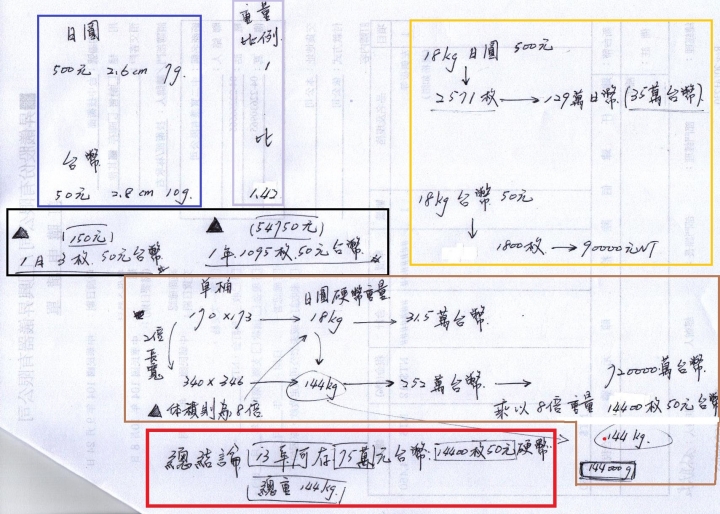 日圓
500元 2.6cm 7g.
台幣
50元 2.8cm 10g.
重量
比例.
1
比
1.42
18kg 日圓 500元
2571枚 → 129萬日幣 (35萬台幣).
18kg 台幣 50元
1800枚 → 90000元NT
▲ (150元)
1日3枚.50元台幣
▲ (54750元)
1年1095枚.50元台幣.
单柏
日圓硬幣重量
170×173 → 18kg → 31.5萬台幣.
2倍長寬
340×346 → 144kg → 252萬台幣. → 720000萬台幣.
▲ 体積則為8倍
乘以8倍重量 14400枚50元台幣
144kg.
144000g
總結論 13年可存75萬元台幣.14400枚50元硬幣.
總重144kg.